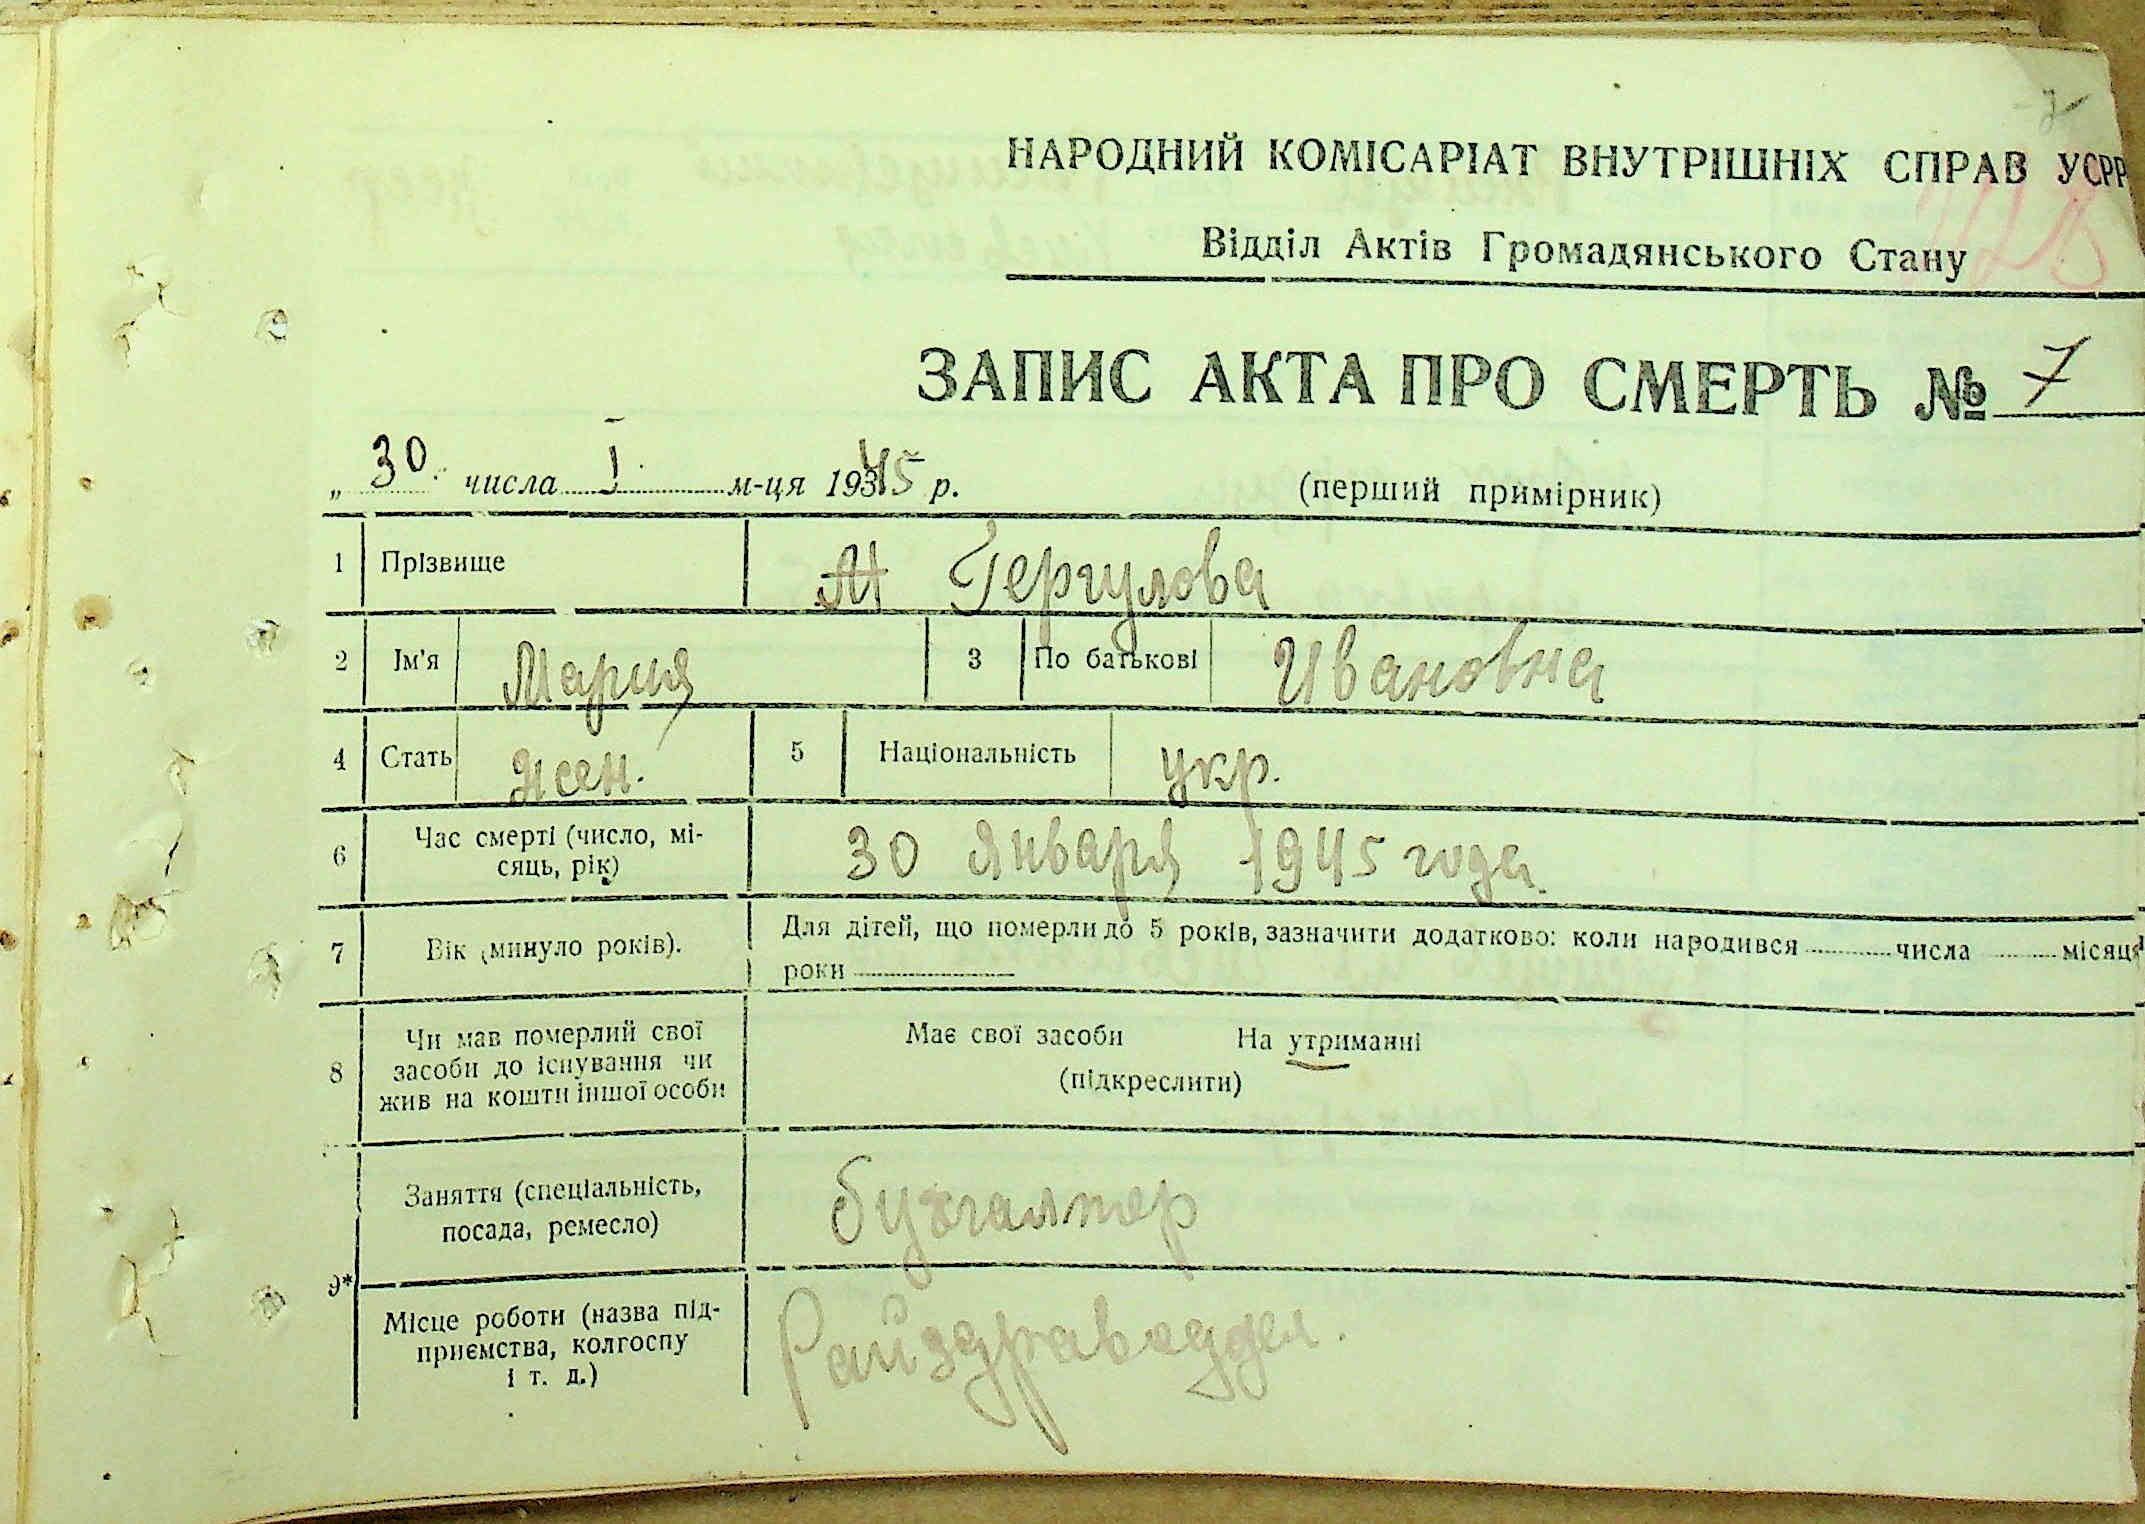 7
НАРОДНИЙ КОМІСАРІАТ ВНУТРІШНІХ СПРАВ УСРР
Відділ Актів Громадянського Стану
ЗАПИС АКТА ПРО СМЕРТЬ № 7
„ 30 " числа I м-ця 19345 р. (перший примірник)
1 Прізвище Гергулова
2 Ім'я Мария 3 По батькові Ивановна
4 Стать жен. 5 Національність укр.
6 Час смерті (число, мі-
сяць, рік) 30 января 1945 года
7 Вік (минуло років). Для дітей, що померли до 5 років, зазначити додатково: коли народився числа місяця
роки
8 Чи мав померлий свої
засоби до існування чи
жив на кошти іншої особи
Має свої засоби На утриманні
(підкреслити)
9*
Заняття (спеціальність,
посада, ремесло) бухгалтер
Місце роботи (назва під-
приємства, колгоспу
і т. д.) Райздраводдел.